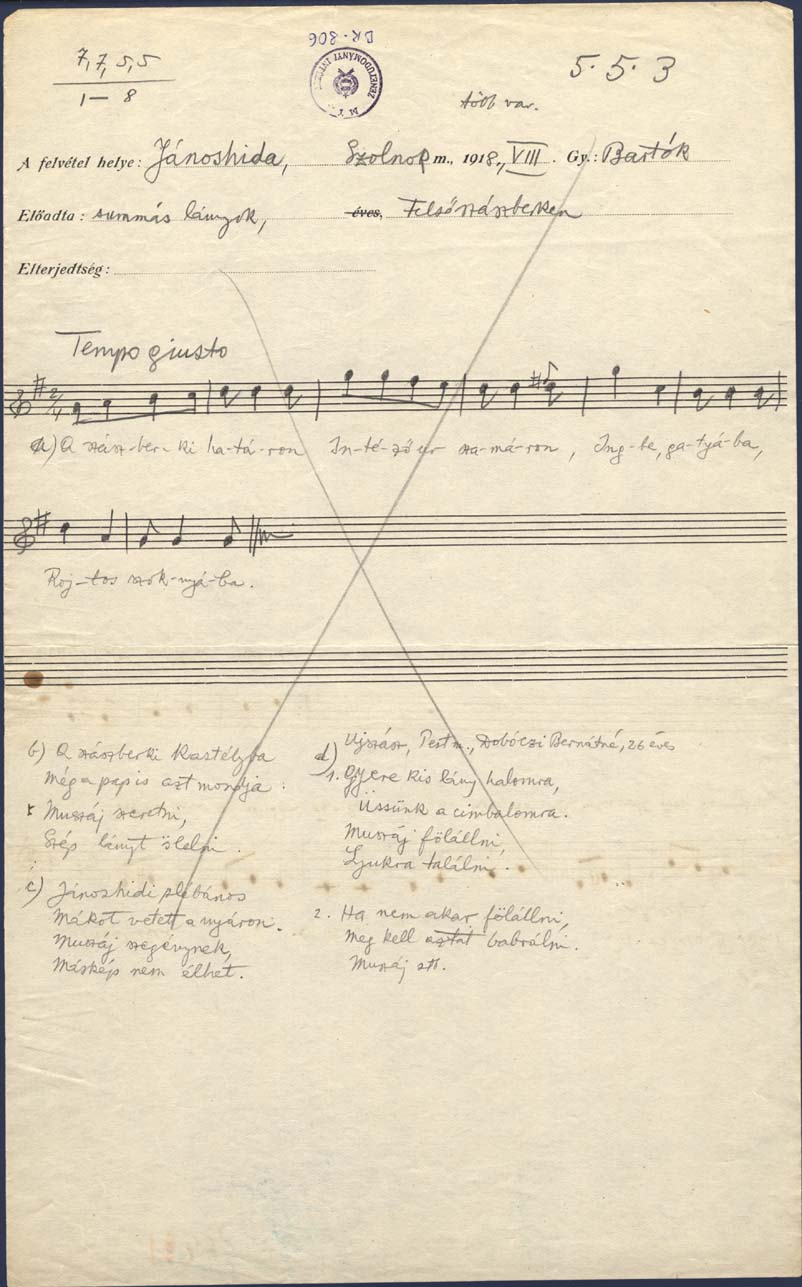 BR-806
7, 7, 5, 5
1 — 8
5. 5. 3
több var.
A felvétel helye: Jánoshida, Szolnok m., 1918, VIII. Gy.: Bartók
Előadta: summás lányok, éves, Felsőszászberken
Elterjedtség:
Tempo giusto
2/4
a) A szász-ber-ki ha-tá-ron In-té-ző úr sza-má-ron, Ing-be, ga-tyá-ba,
Roj-tos szok-nyá-ba.
b) A szászberki kastélyba
Még a pap is azt mondja:
Muszáj szeretni,
Szép lányt ölelni.
c) Jánoshidi plébános
Mákot vetett a nyáron.
Muszáj szegénynek,
Máskép nem élhet.
d) Ujszász, Pest m., Dobóczi Bernátné, 26 éves
1. Gyere kis lány halomra,
Üssünk a cimbalomra.
Muszáj fölállni,
Ljukra találni.
2. Ha nem akar fölállni,
Meg kell aztat babrálni.
Muszáj stb.